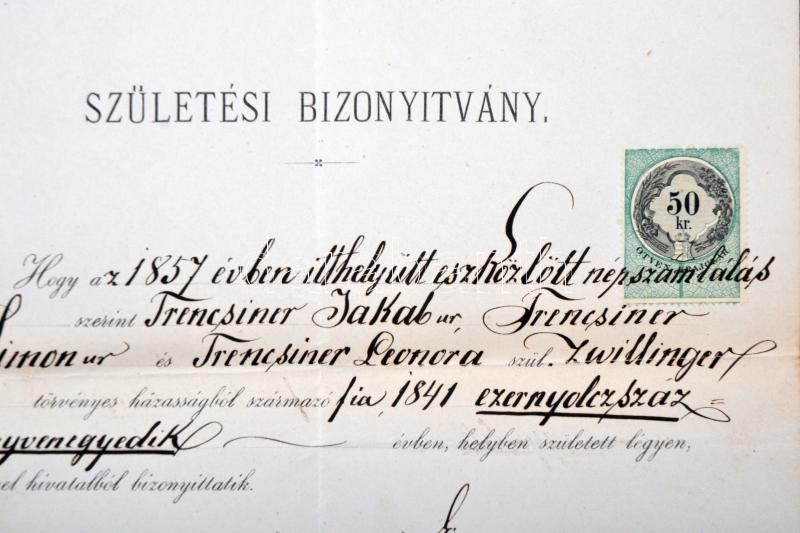 SZÜLETÉSI BIZONYITVÁNY.
50
kr.
Hogy az 1857 évben itthelyütt eszközlött népszámlálás
szerint Trencsiner Jakab ur, Trencsiner
imon ur és Trencsiner Leonóra szül. Zwillinger
törvényes házasságból származó fia, 1841 ezernyolczszáz=
yvenegyedik évben, helyben született légyen,
el hivatalból bizonyittatik.